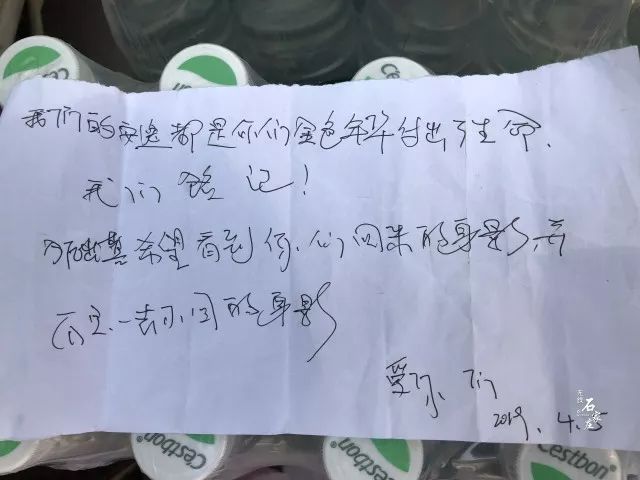 Cestbon
Cestbon
我们的安逸都是你们金色年华付出了生命.
我们 铭记!
希望看到你们回来的身影而
不是一去不回的身影
爱你们
2019.4.5
无线
石家庄
Cestbon
Cestbon
Cestbon